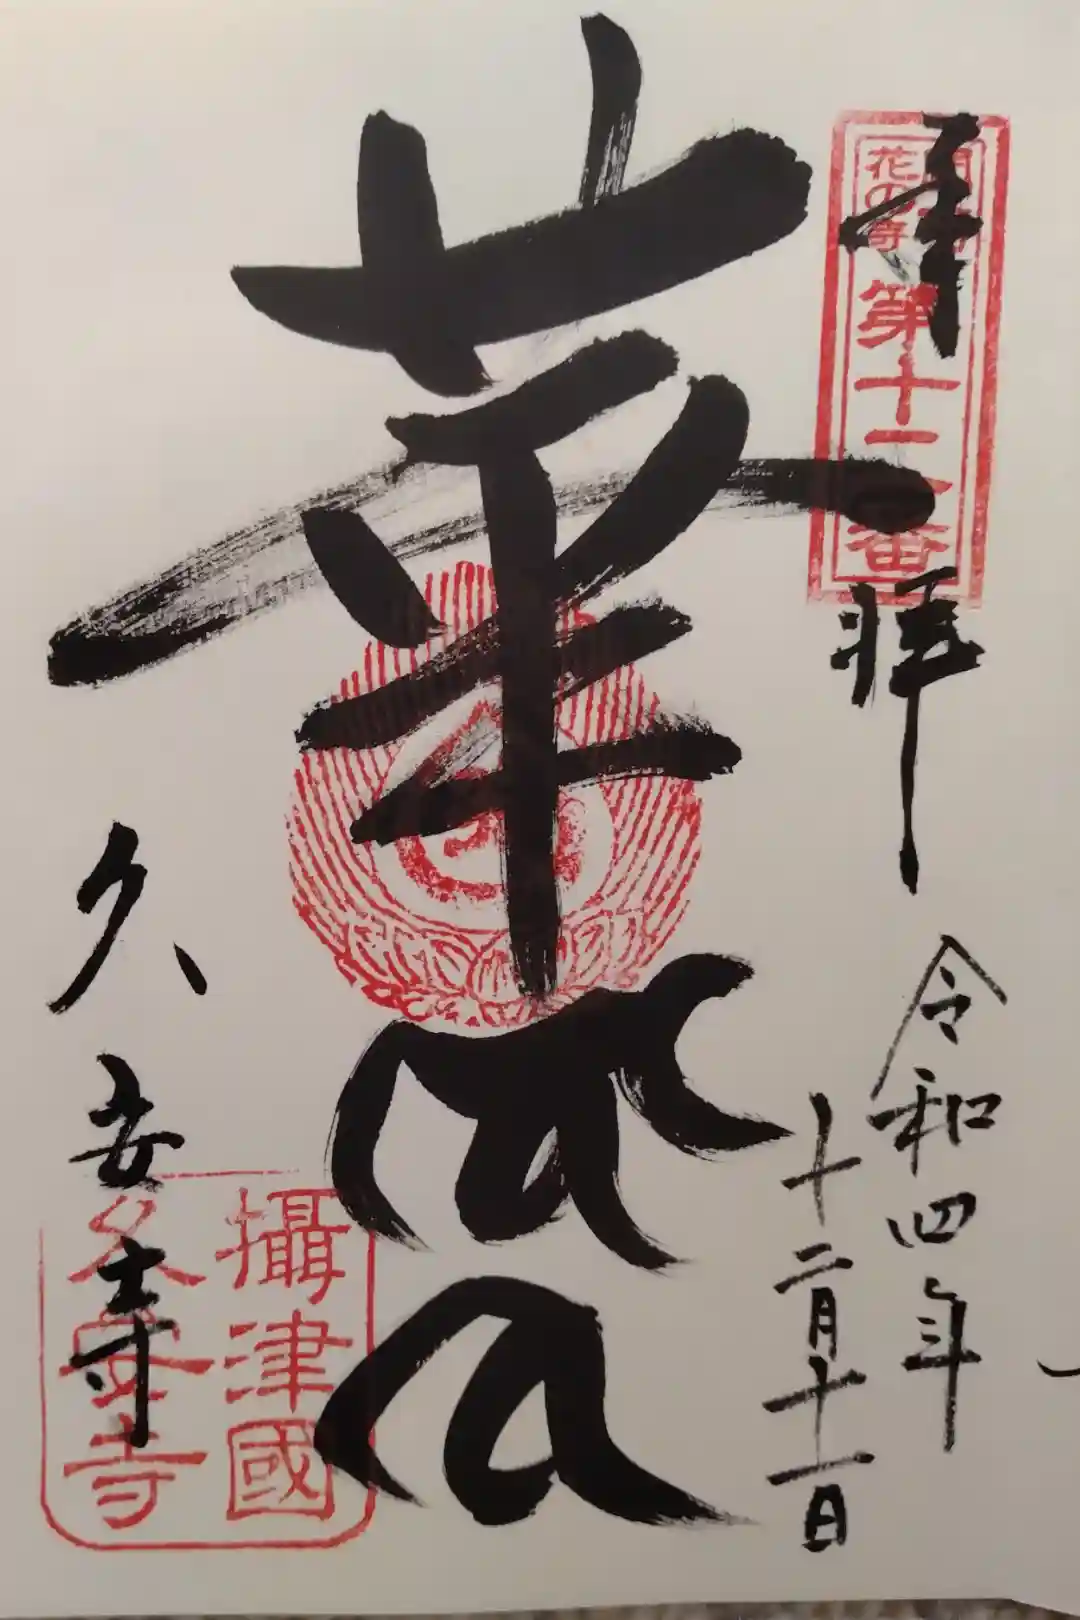 奉拝
関西
花の寺
第十二番
令和四年
十二月十一日
華
久安寺
攝津國
久安寺